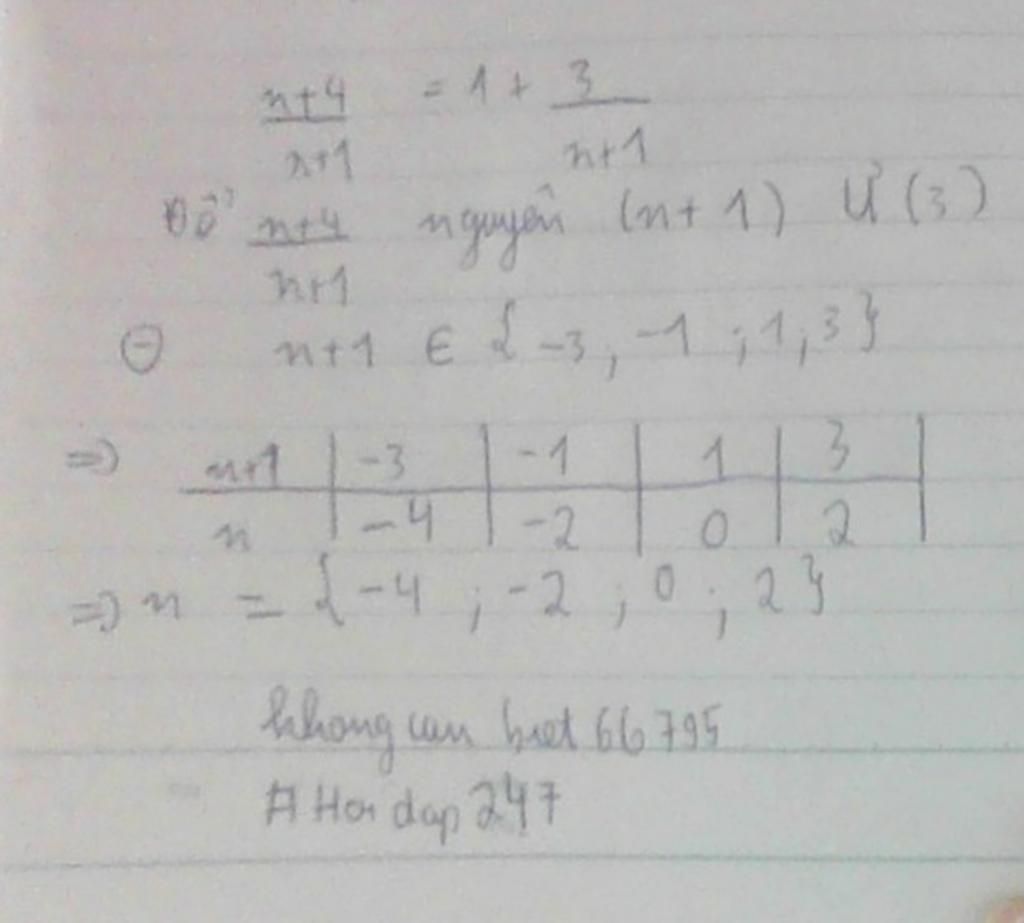 n+4/n+1 = 1 + 3/n+1
Để n+4/n+1 nguyên (n+1) Ư(3)
⊖ n+1 ∈ {-3, -1; 1, 3}
=> n+1 | -3 | -1 | 1 | 3 |
n | -4 | -2 | 0 | 2 |
=> n = {-4; -2; 0; 2}
khong can biet 66795
#Hoi dap 247